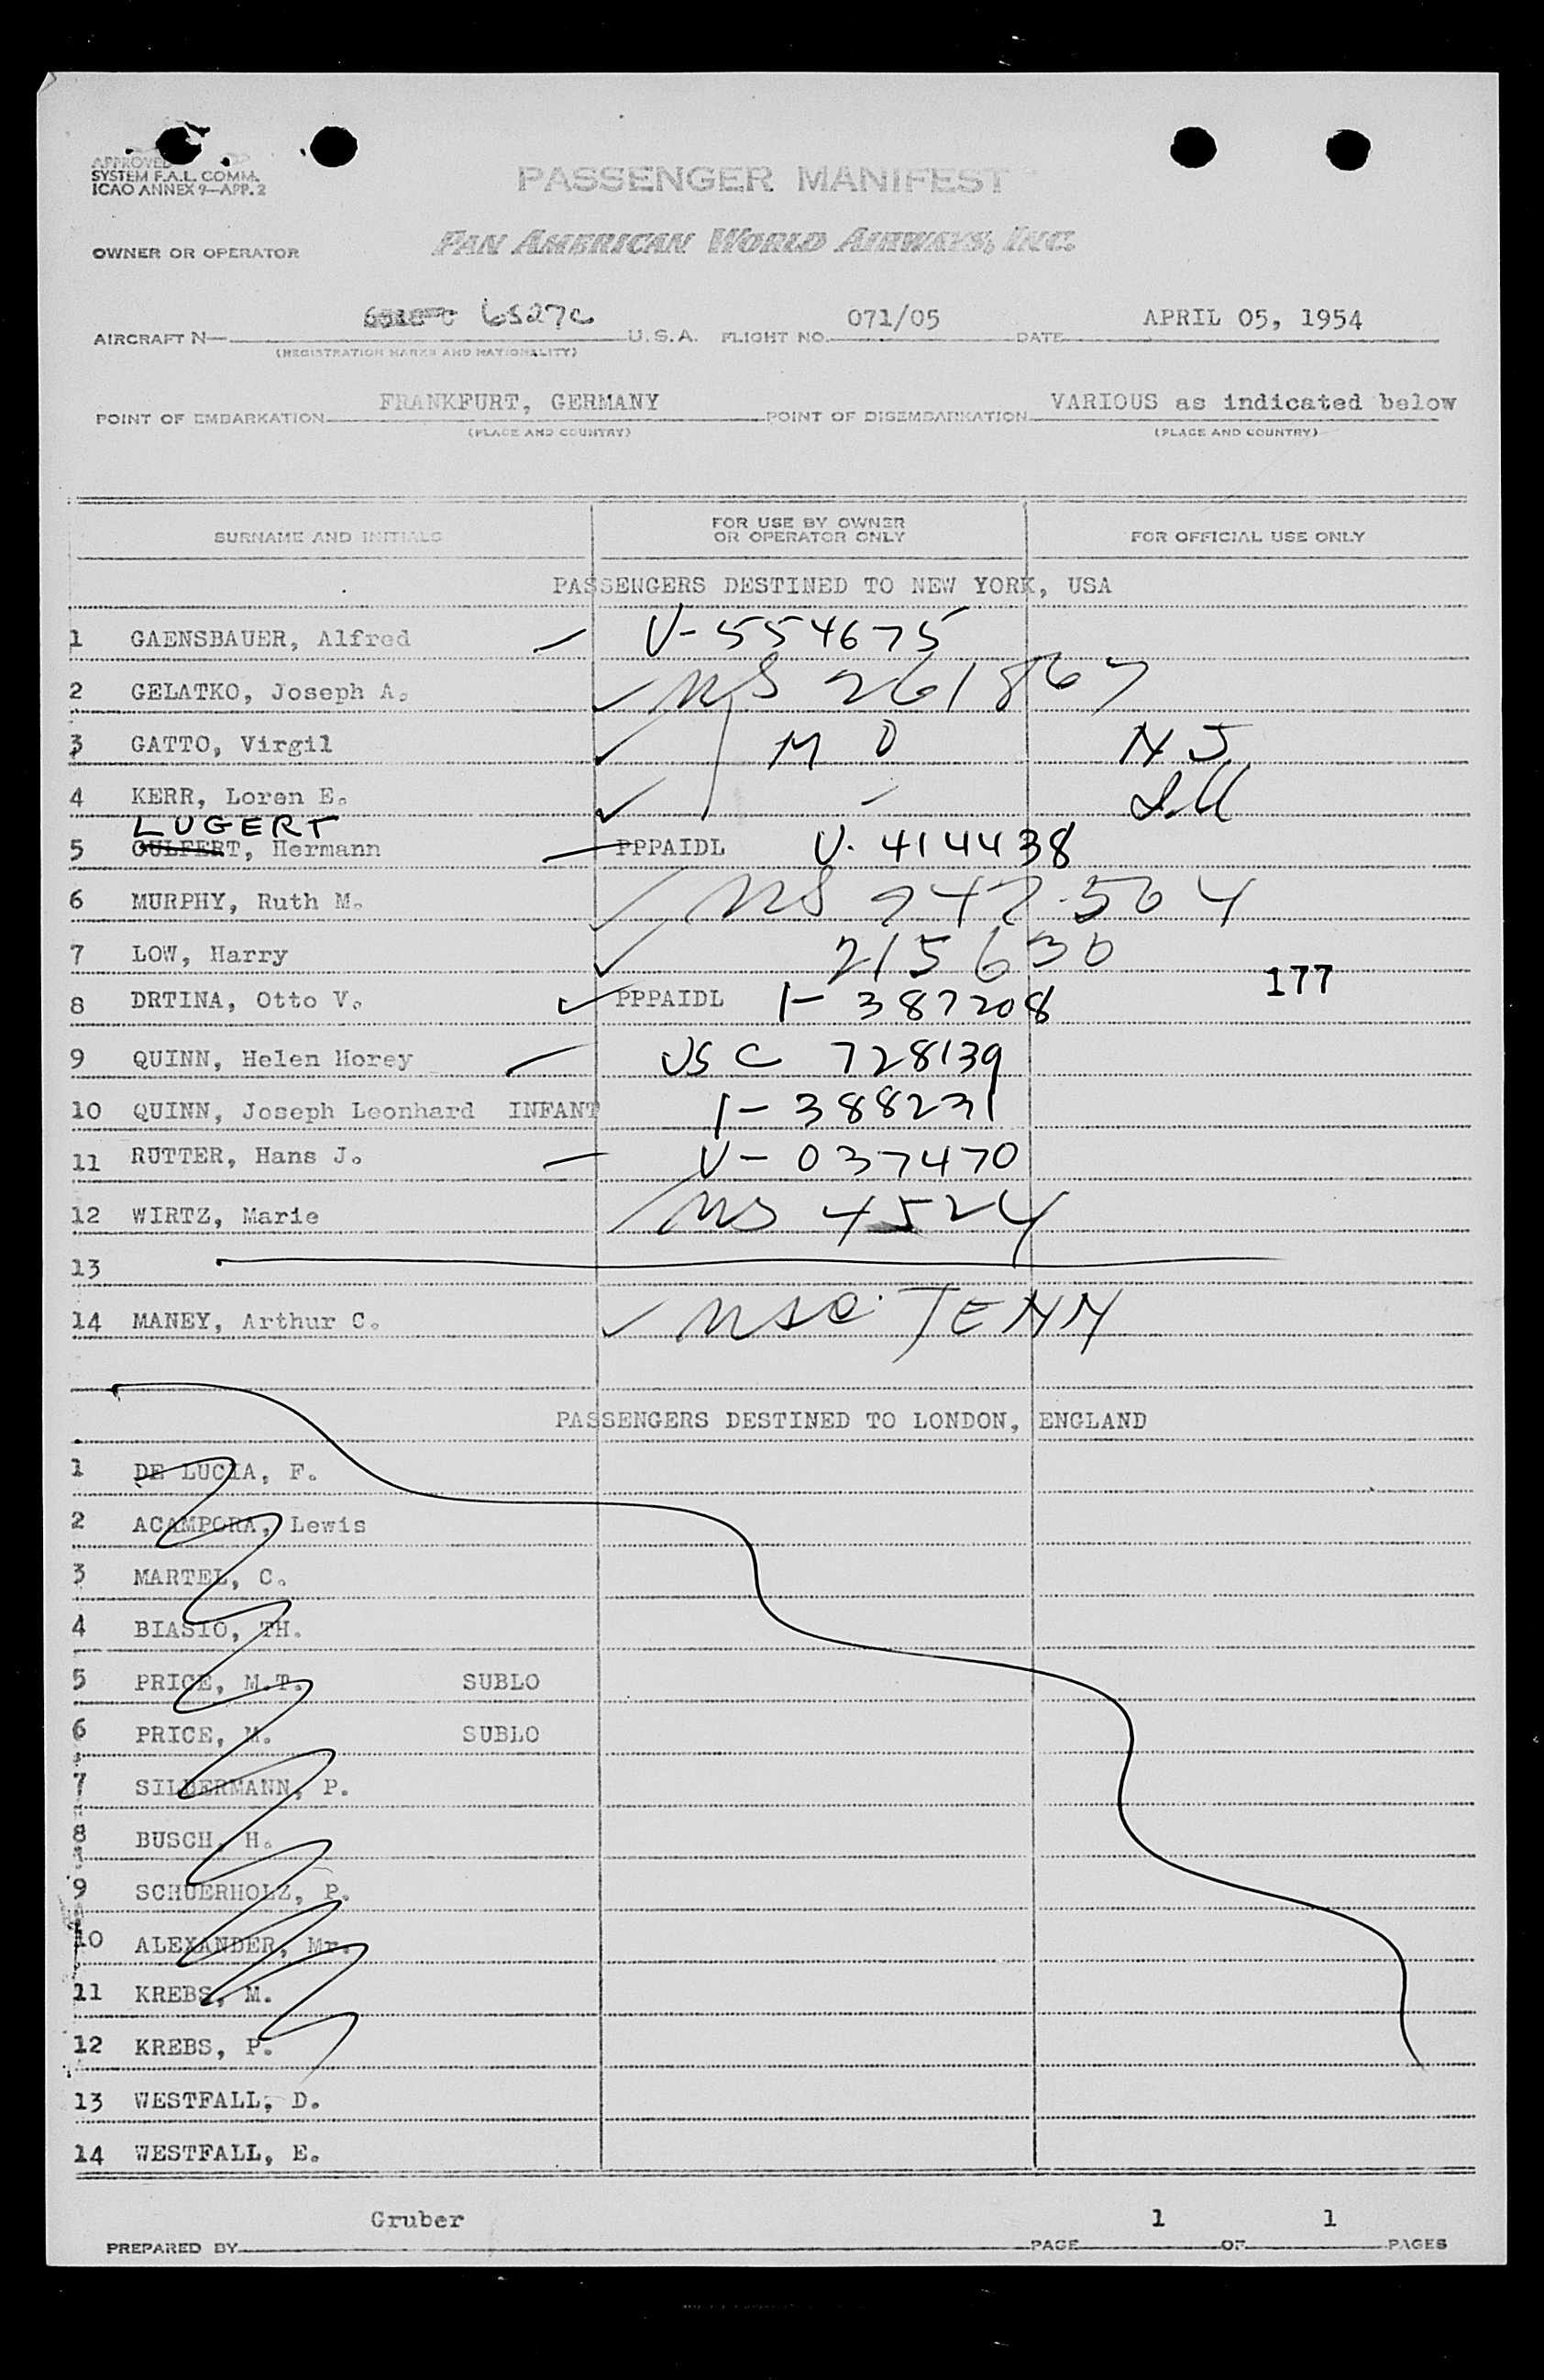 APPROVED
SYSTEM F.A.L. COMM.
ICAO ANNEX 9—APP. 2
PASSENGER MANIFEST
OWNER OR OPERATOR PAN AMERICAN WORLD AIRWAYS, INC.
AIRCRAFT N— 6527C U.S.A. FLIGHT NO. 071/05 DATE APRIL 05, 1954
(REGISTRATION MARKS AND NATIONALITY)
POINT OF EMBARKATION FRANKFURT, GERMANY POINT OF DISEMBARKATION VARIOUS as indicated below
(PLACE AND COUNTRY) (PLACE AND COUNTRY)
SURNAME AND INITIALS FOR USE BY OWNER OR OPERATOR ONLY FOR OFFICIAL USE ONLY
PASSENGERS DESTINED TO NEW YORK, USA
1 GAENSBAUER, Alfred V-554675
2 GELATKO, Joseph A. US 261867
3 GATTO, Virgil M O N J
4 KERR, Loren E. Ill
LUGERT
5 GULFERT, Hermann PPPAIDL V. 414438
6 MURPHY, Ruth M. US 247504
7 LOW, Harry 215630
177
8 DRTINA, Otto V. PPPAIDL 1- 387208
9 QUINN, Helen Horey USC 728139
10 QUINN, Joseph Leonhard INFANT 1-388231
11 RUTTER, Hans J. V-037470
12 WIRTZ, Marie US 4524
13
14 MANEY, Arthur C. USC. TENN
PASSENGERS DESTINED TO LONDON, ENGLAND
1 DE LUCIA, F.
2 ACAMPORA, Lewis
3 MARTEL, C.
4 BIASIO, TH.
5 PRICE, M.T. SUBLO
6 PRICE, M. SUBLO
7 SILBERMANN, P.
8 BUSCH, H.
9 SCHUERHOLZ, P.
10 ALEXANDER, Mr.
11 KREBS, M.
12 KREBS, P.
13 WESTFALL, D.
14 WESTFALL, E.
PREPARED BY Gruber PAGE 1 OF 1 PAGES